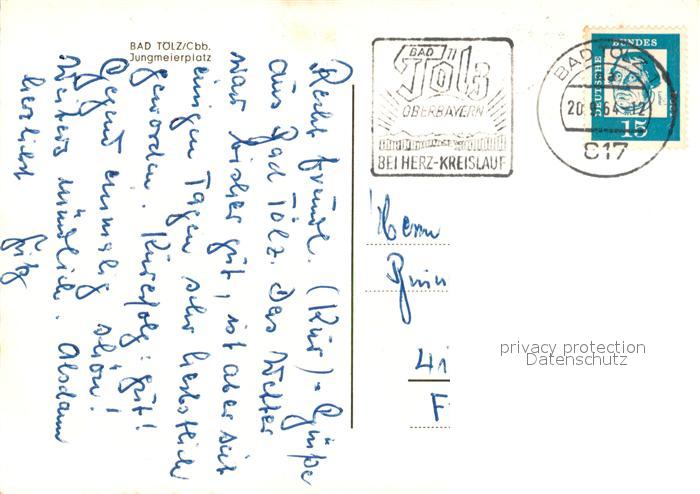 BAD TÖLZ/Obb.
Jungmeierplatz
Recht freundl. (Kur)-Grüße
aus Bad Tölz. Das Wetter
war bisher gut, ist aber seit
einigen Tagen sehr herbstlich
geworden. Kurerfolg: gut!
Gegend einmalig schön!
Weiteres mündlich. Alsdann
herzlichst
Fritz
BAD TÖLZ
OBERBAYERN
BEI HERZ-KREISLAUF
BAD TÖLZ 1
a
20.9.64-12
817
DEUTSCHE BUNDES
15
Herrn
41
F
privacy protection
Datenschutz